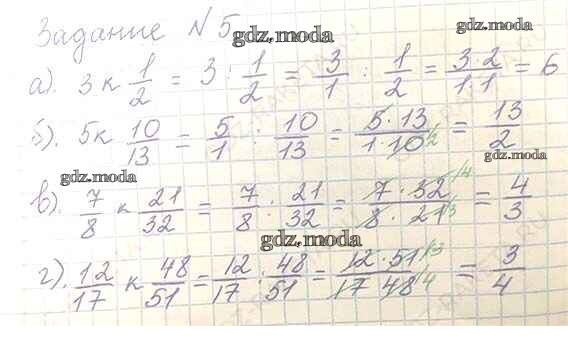 Задание №5 gdz.moda
gdz.moda
а). 3 к 1/2 = 3 : 1/2 = 3/1 : 1/2 = 3·2/1·1 = 6
б). 5 к 10/13 = 5/1 : 10/13 = 5·13/1·10 2 = 13/2
gdz.moda
gdz.moda
в). 7/8 к 21/32 = 7/8 : 21/32 = 7·32 4/8·21 3 = 4/3
gdz.moda
г). 12/17 к 48/51 = 12/17 : 48/51 = 12·51 3/17 48 4 = 3/4